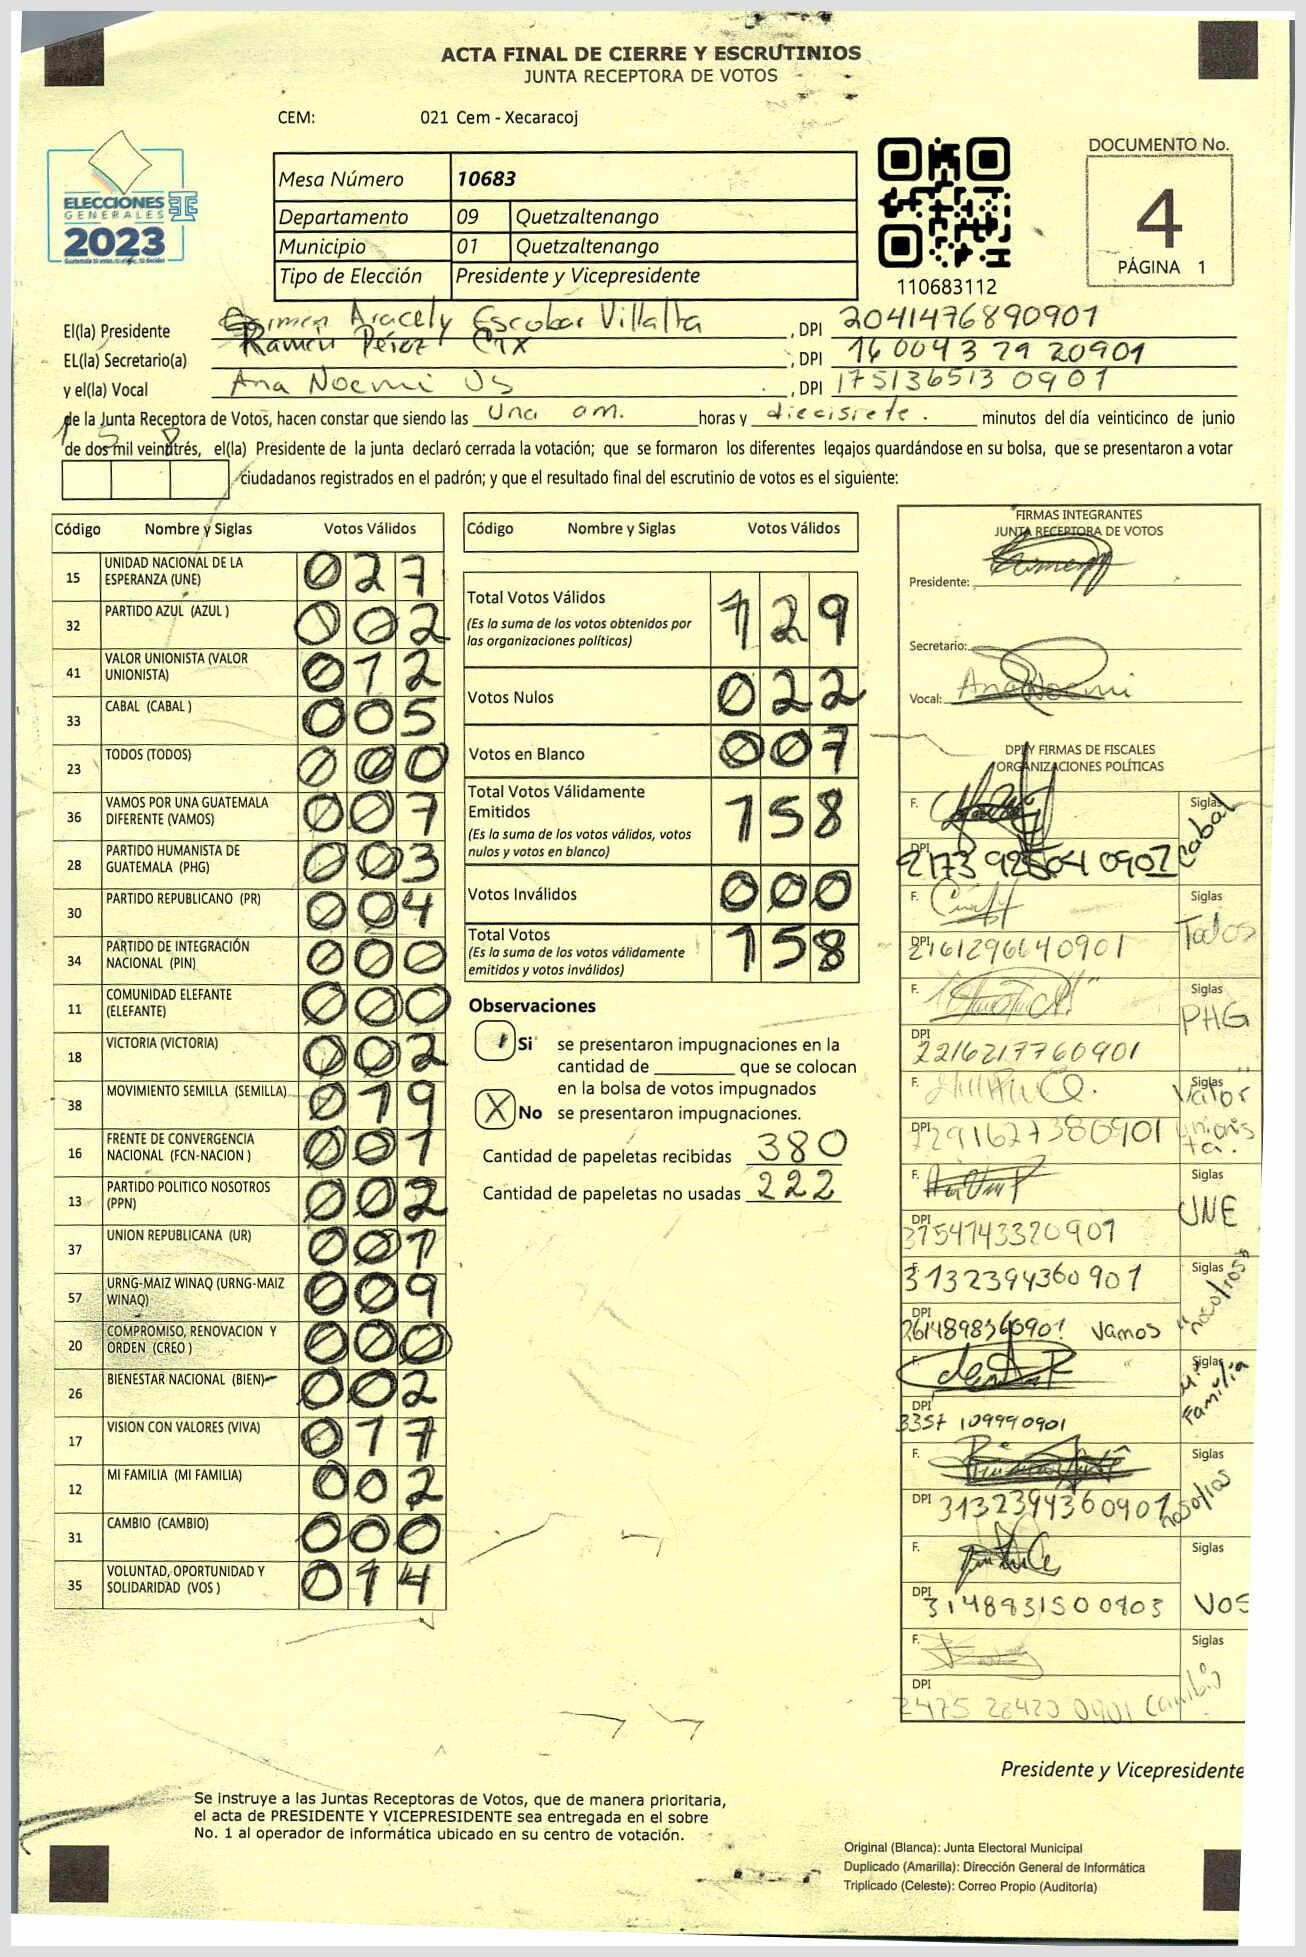 ACTA FINAL DE CIERRE Y ESCRUTINIOS
JUNTA RECEPTORA DE VOTOS
CEM: 021 Cem - Xecaracoj
DOCUMENTO No.
4
PÁGINA 1
ELECCIONES
GENERALES
2023
Mesa Número 10683
Departamento 09 Quetzaltenango
Municipio 01 Quetzaltenango
Tipo de Elección Presidente y Vicepresidente
110683112
El(la) Presidente Carmen Aracely Escobar Villalta , DPI 2041476890901
EL(la) Secretario(a) Ramón Pérez , DPI 1600437920901
y el(la) Vocal Ana Noemi Us , DPI 1751365130901
de la Junta Receptora de Votos, hacen constar que siendo las una am. horas y diecisiete. minutos del día veinticinco de junio
de dos mil veintitrés, el(la) Presidente de la junta declaró cerrada la votación; que se formaron los diferentes legajos guardándose en su bolsa, que se presentaron a votar
158 ciudadanos registrados en el padrón; y que el resultado final del escrutinio de votos es el siguiente:
Código Nombre y Siglas Votos Válidos
15 UNIDAD NACIONAL DE LA ESPERANZA (UNE) 027
32 PARTIDO AZUL (AZUL ) 002
41 VALOR UNIONISTA (VALOR UNIONISTA) 012
33 CABAL (CABAL ) 005
23 TODOS (TODOS) 000
36 VAMOS POR UNA GUATEMALA DIFERENTE (VAMOS) 007
28 PARTIDO HUMANISTA DE GUATEMALA (PHG) 003
30 PARTIDO REPUBLICANO (PR) 004
34 PARTIDO DE INTEGRACIÓN NACIONAL (PIN) 000
11 COMUNIDAD ELEFANTE (ELEFANTE) 000
18 VICTORIA (VICTORIA) 002
38 MOVIMIENTO SEMILLA (SEMILLA) 019
16 FRENTE DE CONVERGENCIA NACIONAL (FCN-NACION ) 001
13 PARTIDO POLITICO NOSOTROS (PPN) 002
37 UNION REPUBLICANA (UR) 001
57 URNG-MAIZ WINAQ (URNG-MAIZ WINAQ) 009
20 COMPROMISO, RENOVACION Y ORDEN (CREO ) 000
26 BIENESTAR NACIONAL (BIEN) 002
17 VISION CON VALORES (VIVA) 017
12 MI FAMILIA (MI FAMILIA) 002
31 CAMBIO (CAMBIO) 000
35 VOLUNTAD, OPORTUNIDAD Y SOLIDARIDAD (VOS ) 014
Código Nombre y Siglas Votos Válidos
Total Votos Válidos 129
(Es la suma de los votos obtenidos por
las organizaciones políticas)
Votos Nulos 022
Votos en Blanco 007
Total Votos Válidamente
Emitidos 158
(Es la suma de los votos válidos, votos
nulos y votos en blanco)
Votos Inválidos 000
Total Votos 158
(Es la suma de los votos válidamente
emitidos y votos inválidos)
Observaciones
Si se presentaron impugnaciones en la
cantidad de ________ que se colocan
en la bolsa de votos impugnados
X No se presentaron impugnaciones.
Cantidad de papeletas recibidas 380
Cantidad de papeletas no usadas 222
FIRMAS INTEGRANTES
JUNTA RECEPTORA DE VOTOS
Presidente:
Secretario:
Vocal: Ana Noemi
DPI Y FIRMAS DE FISCALES
ORGANIZACIONES POLÍTICAS
F. Siglas cabal
DPI
F. Siglas Todos
DPI 2461296640901
F. Siglas PHG
DPI 2216217760901
F. Siglas Valor unionista.
DPI 2291627380901
F. Siglas UNE
DPI 3754743320901
F. 3132394360901 Siglas "nosotros"
DPI 2614898360901 Vamos
F. Siglas Mi Familia
DPI 3357109990901
F. Siglas nosotros
DPI 3132394360901
F. Siglas VOS
DPI 3148831500903
F. Siglas Cambio
DPI
Presidente y Vicepresidente
Se instruye a las Juntas Receptoras de Votos, que de manera prioritaria,
el acta de PRESIDENTE Y VICEPRESIDENTE sea entregada en el sobre
No. 1 al operador de informática ubicado en su centro de votación.
Original (Blanca): Junta Electoral Municipal
Duplicado (Amarilla): Dirección General de Informática
Triplicado (Celeste): Correo Propio (Auditoría)